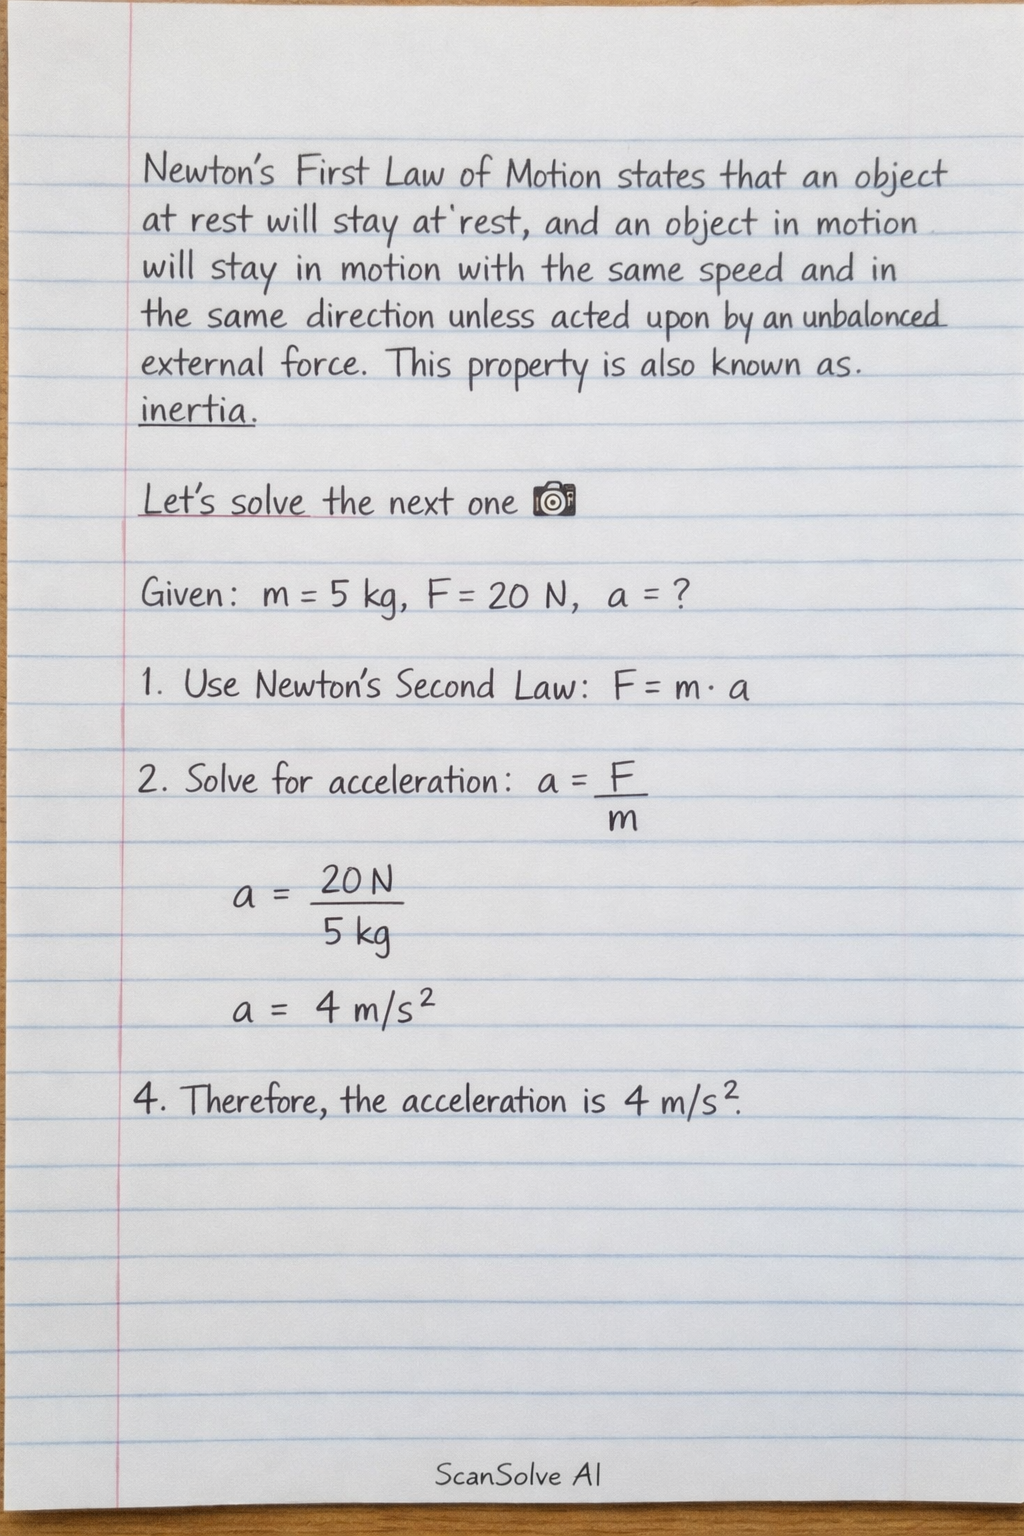 Newton's First Law of Motion states that an object
at rest will stay at rest, and an object in motion
will stay in motion with the same speed and in
the same direction unless acted upon by an unbalonced
external force. This property is also known as.
inertia.
Let's solve the next one 📷
Given: m = 5 kg, F = 20 N, a = ?
1. Use Newton's Second Law: F = m · a
2. Solve for acceleration: a = F
m
a = 20 N
5 kg
a = 4 m/s²
4. Therefore, the acceleration is 4 m/s².
ScanSolve AI